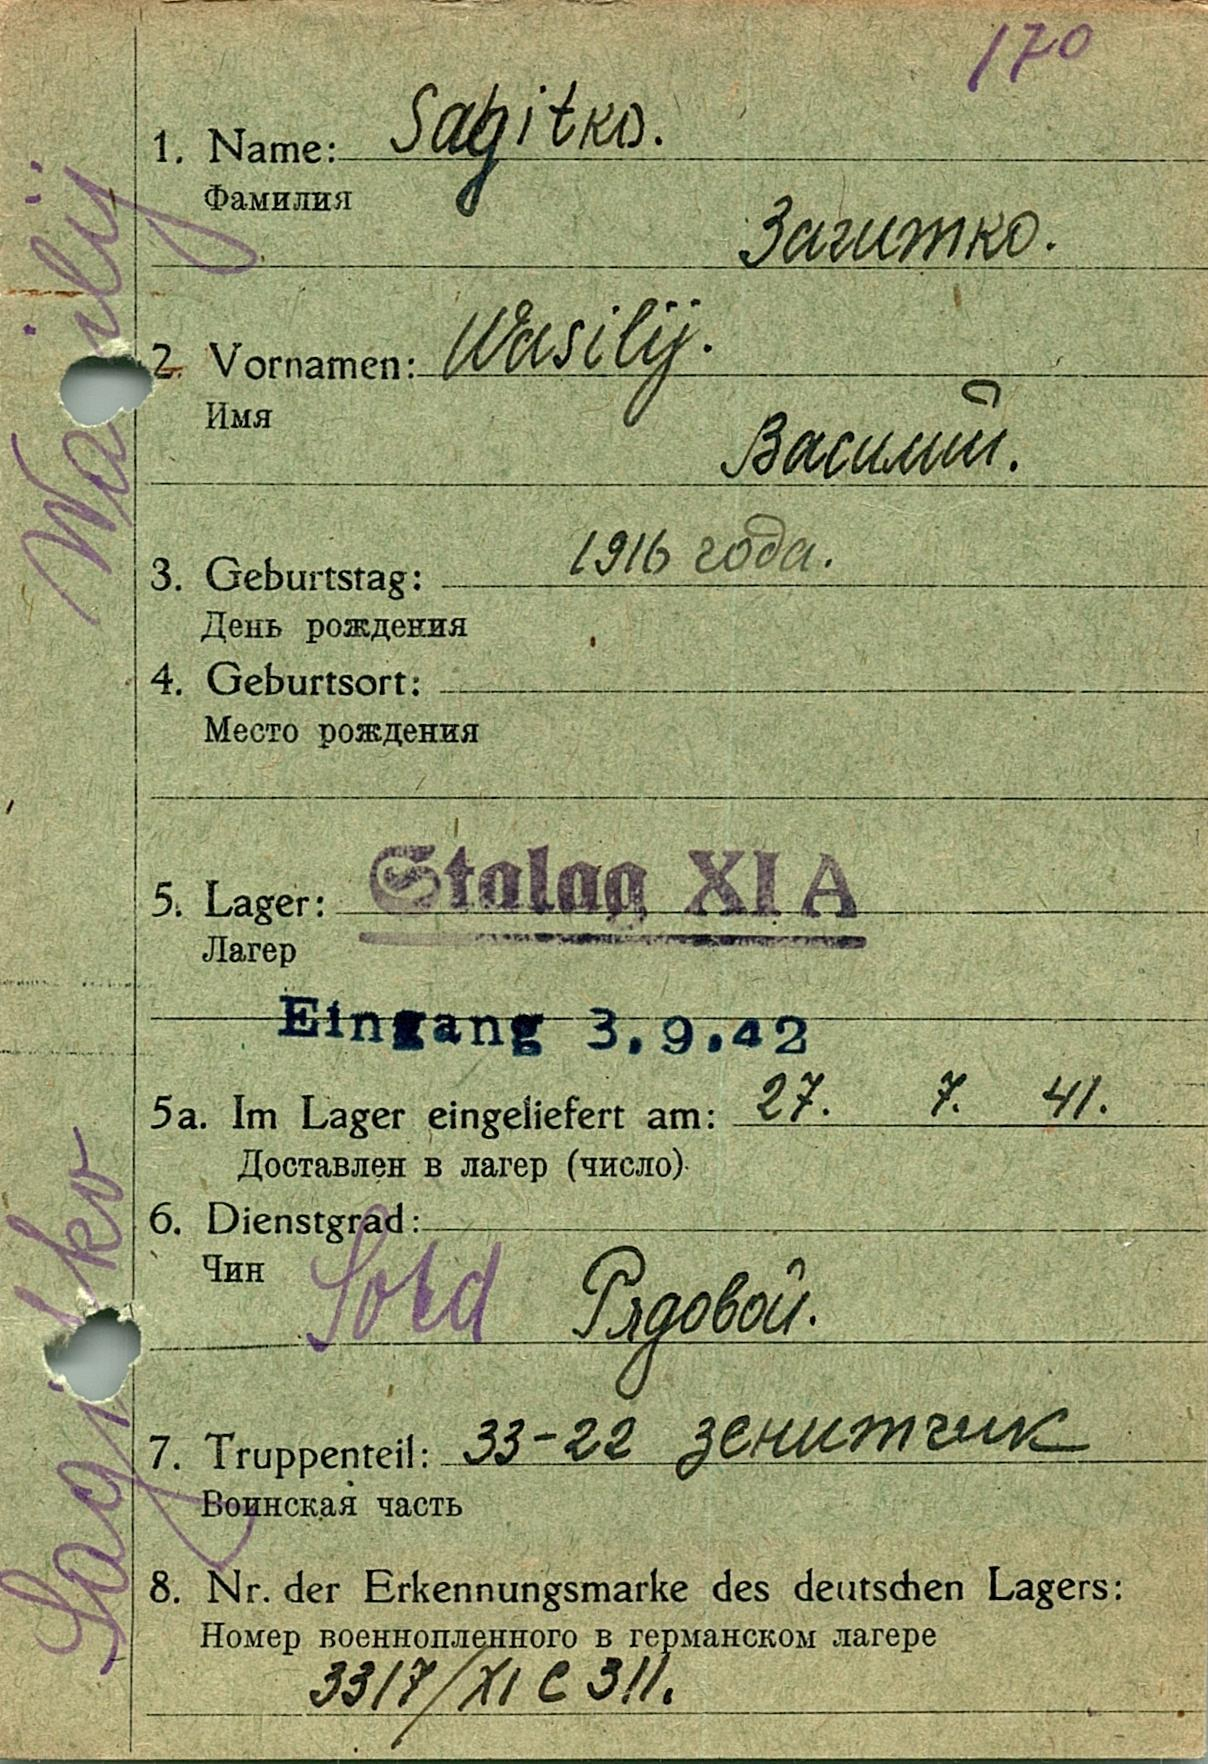 170
1. Name: Sagitko.
Фамилия
Загитко.
2. Vornamen: Wasilij.
Имя
Василий.
3. Geburtstag: 1916 года.
День рождения
4. Geburtsort:
Место рождения
5. Lager: Stalag XI A
Лагер
Eingang 3.9.42
5a. Im Lager eingeliefert am: 27. 7. 41.
Доставлен в лагер (число)
6. Dienstgrad:
Чин Sold Рядовой.
7. Truppenteil: 33-22 зенитчик
Воинская часть
8. Nr. der Erkennungsmarke des deutschen Lagers:
Номер военнопленного в германском лагере
3317/XI C 311.
Sagitko Wasilij